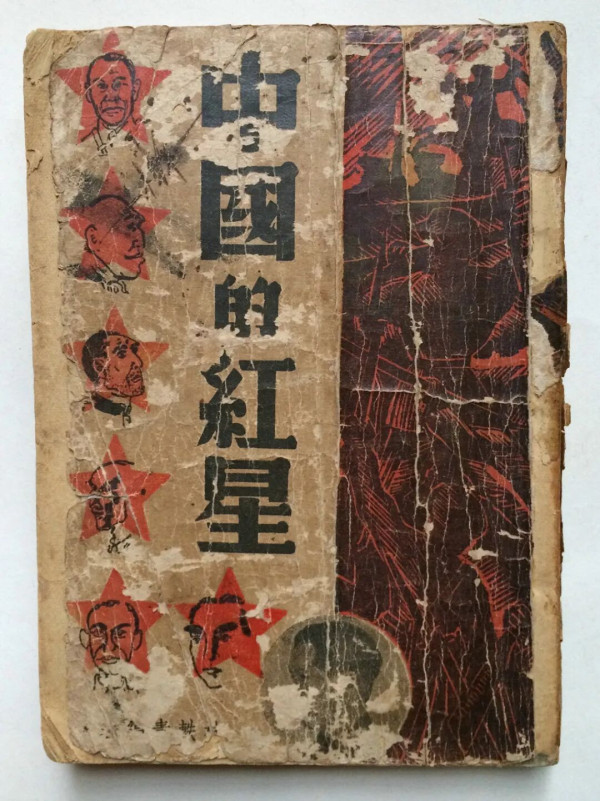 中國的紅星